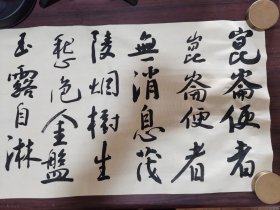 崑崙便者
崑崙便者
無消息茂
陵烟樹生
愁色金盤
玉露自淋